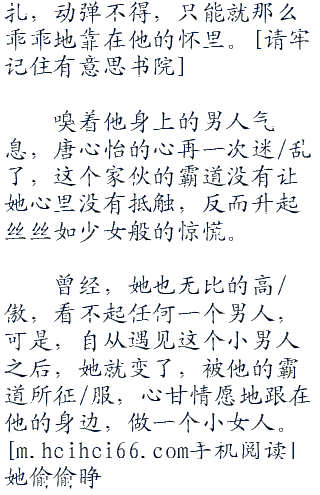 扎，动弹不得，只能就那么
乖乖地靠在他的怀里。[请牢
记住有意思书院]
嗅着他身上的男人气
息，唐心怡的心再一次迷/乱
了，这个家伙的霸道没有让
她心里没有抵触，反而升起
丝丝如少女般的惊慌。
曾经，她也无比的高/
傲，看不起任何一个男人，
可是，自从遇见这个小男人
之后，她就变了，被他的霸
道所征/服，心甘情愿地跟在
他的身边，做一个小女人。
[m.hcihci66.com手机阅读|
她偷偷睁